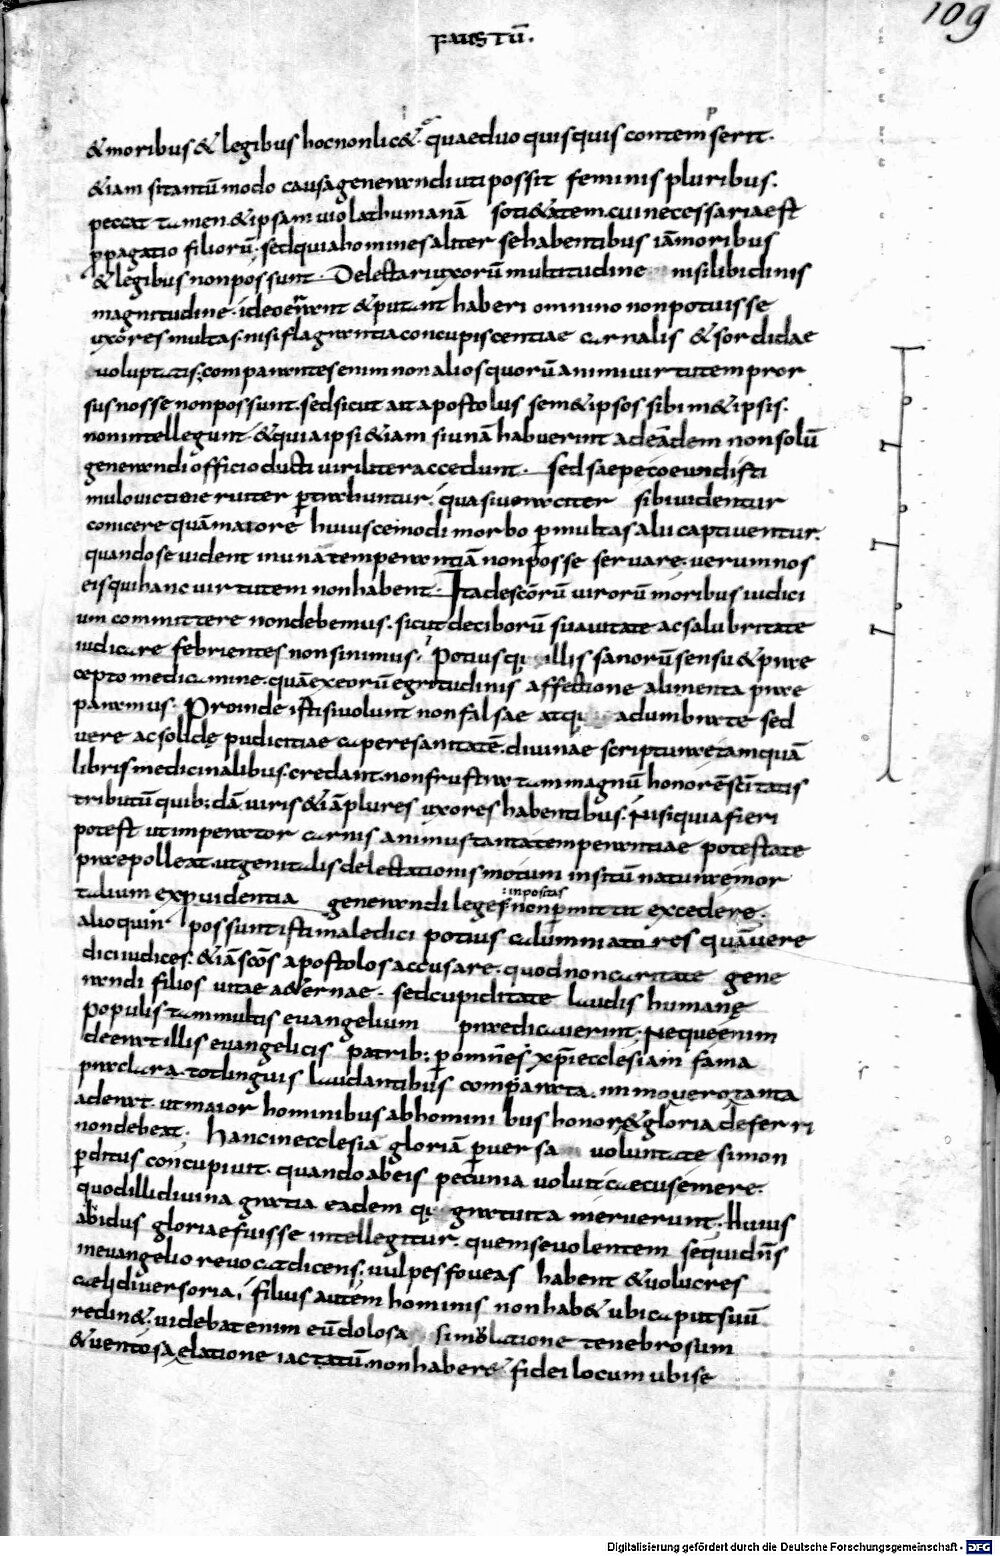 109
FAUSTŪ.
& moribus & legibus hoc non lic&. quae duo quisquis contempserit.
&iam si tantū modo causa generandi uti possit feminis pluribus.
peccat tamen. & ipsam violat humanā soti&atem. cui necessaria est
ppagatio filiorū. sed quia homines aliter se habentibus iā moribus
& legibus non possunt. Delectari uxorū multitudine nisi libidinis
magnitudine. ideo errant & putant haberi omnino non potuisse
uxores multas. nisi flagrantia concupiscentiae carnalis & sordidae
voluptatis; comparantes enim non alios quorū animi uirtutem pror
sus nosse non possunt. sed sicut ait apostolus sem&ipsos sibi m&ipsis.
non intellegunt. & quia ipsi &iam si unā habuerint ad eādem non solū
generandi officio ducti uiriliter accedunt. sed saepe coeundi sti
mulo uicti eneruiter ptrahuntur. quasi ueraciter sibi uidentur
conicere quā maiore huiuscemodi morbo p multas alii captiuentur.
quando se uident in una temperantiā non posse seruare. uerum nos
eis qui hanc uirtutem non habent. Ita de scōrū uirorū moribus iudici
um committere non debemus. sicut de ciborū suauitate ac salubritate
iudicare febrientes non sinimus. Potius q illis sanorū sensu & prae
cepto medicamine. quā ex eorū egritudinis affectione alimenta prae
paramus. Proinde isti si uolunt non falsae atq adumbrate sed
vere ac solidę pudicitiae capere sanitatē. diuinae scripturae tamquā
libris medicinalibus. credant. non frustra tam magnū honorē scītatis
tributū quib; dā uiris &iā plures uxores habentibus. Nisi quia fieri
potest ut imperator carnis animus tanta temperantiae potestate
praepolleat. ut genitalis delectationis motum insitū naturae mor
talium ex puidentia generandi leges inpositas non pmittat excedere.
alioquin possunt isti maledici potius calumniatores quā vere
dici iudices. &iā scōs apostolos accusare. quod non caritate gene
randi filios uitae a&ernae. sed cupiditate laudis humanę
populis tam multis evangelium praedicauerint. Neque enim
deerat illis evangelicis patrib; p omnēs xp̄i ecclesiam fama
praeclara. tot linguis laudantibus comparata. immo uero tanta
aderat. ut maior hominibus ab hominibus honor & gloria deferri
non debeat. hanc in ecclesia gloriā puersa voluntate simon
pditus concupiuit. quando ab eis pecunia voluit caecus emere.
quod illi diuina gratia eadem q gratuita meruerunt. Huius
abidus gloriae fuisse intellegitur. quem se uolentem sequi dn̄s
in evangelio reuocat dicens. uulpes foueas habent & uolucres
caeli diuersoria, filius autem hominis non hab& ubi caput suū
reclin&. uidebat enim eū dolosa simolatione tenebrosum
& uentosa elatione iactatū. non habere fidei locum ubi se
Digitalisierung gefördert durch die Deutsche Forschungsgemeinschaft - DFG